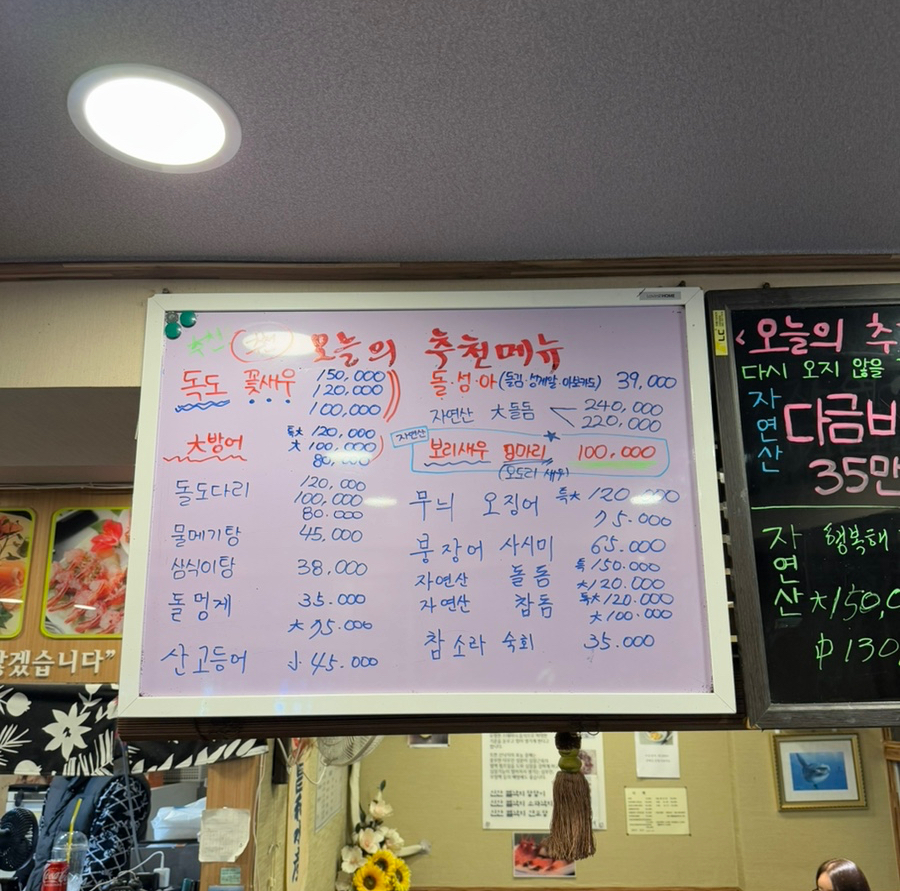 오늘의 추천메뉴
독도 꽃새우 150,000
120,000
100,000
大방어 특大 120,000
大 100,000
80,000
돌도다리 120,000
100,000
80.000
물메기탕 45,000
삼식이탕 38,000
돌 멍게 35.000
산고등어 大 75.000
小 45.000
돌·성·아(돌김·성게알·아보카도) 39,000
자연산 大돌돔 240,000
220,000
자연산 보리새우 마리 100,000
(오도리 새우)
무늬 오징어 특大 120,000
75.000
붕장어 사시미 65.000
자연산 돌돔 특150.000
大120.000
자연산 참돔 특大120.000
大100.000
참소라 숙회 35.000
<오늘의 추
다시 오지 않을
자연산 다금바
35만
자연산 행복해
大150,0
中130
겠습니다”